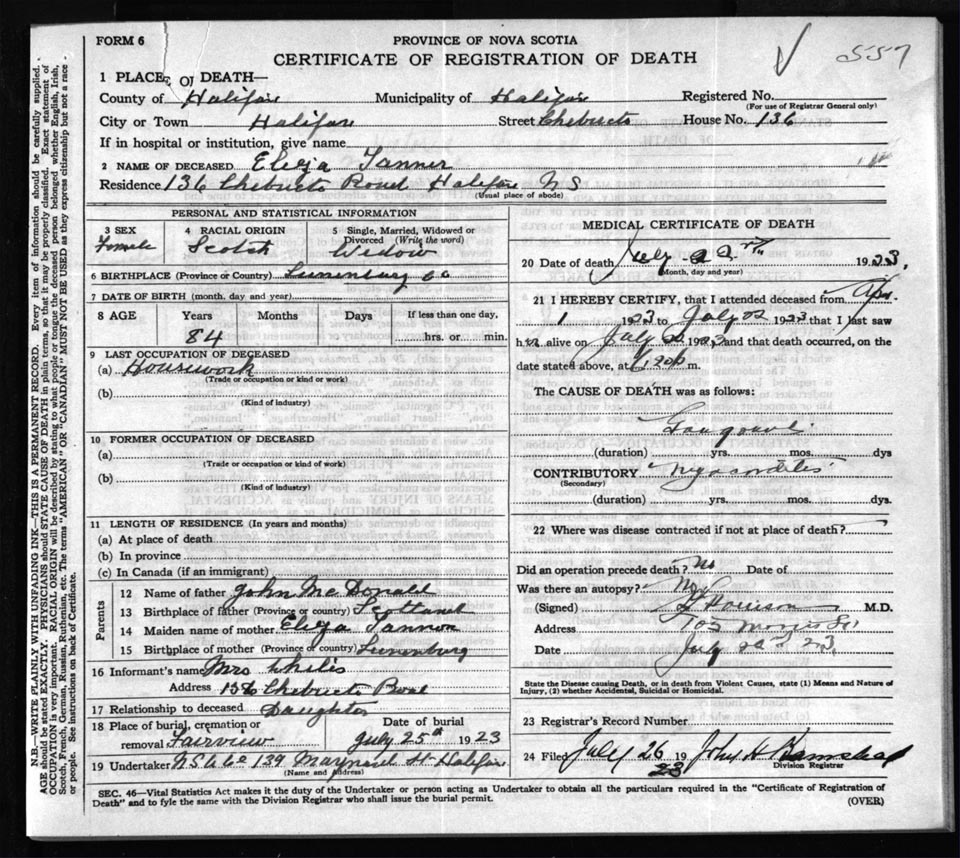 FORM 6
PROVINCE OF NOVA SCOTIA
CERTIFICATE OF REGISTRATION OF DEATH
557
1 PLACE OF DEATH—
County of Halifax Municipality of Halifax Registered No.
(For use of Registrar General only)
City or Town Halifax Street Chebucto House No. 136
If in hospital or institution, give name
2 NAME OF DECEASED Eliza Tanner
Residence 136 Chebucto Road Halifax NS
(Usual place of abode)
PERSONAL AND STATISTICAL INFORMATION
3 SEX Female
4 RACIAL ORIGIN Scotch
5 Single, Married, Widowed or Divorced (Write the word) Widow
6 BIRTHPLACE (Province or Country) Lunenburg Co
7 DATE OF BIRTH (month, day and year)
8 AGE Years Months Days If less than one day,
84 hrs. or min.
9 LAST OCCUPATION OF DECEASED
(a) Housework
(Trade or occupation or kind or work)
(b)
(Kind of industry)
10 FORMER OCCUPATION OF DECEASED
(a)
(Trade or occupation or kind of work)
(b)
(Kind of industry)
11 LENGTH OF RESIDENCE (In years and months)
(a) At place of death
(b) In province
(c) In Canada (if an immigrant)
Parents
12 Name of father John McDonald
13 Birthplace of father (Province or country) Scotland
14 Maiden name of mother Eliza Tanner
15 Birthplace of mother (Province or country) Lunenburg
16 Informant's name Mrs
Address 136 Chebucto Road
17 Relationship to deceased Daughter
18 Place of burial, cremation or removal Fairview
Date of burial July 25th 1923
19 Undertaker N S U Co 139 Maynard St Halifax
(Name and Address)
MEDICAL CERTIFICATE OF DEATH
20 Date of death July 22nd 1923,
(Month, day and year)
21 I HEREBY CERTIFY, that I attended deceased from Apr
1 1923 to July 22 1923 that I last saw
her alive on July 22 1923 and that death occurred, on the
date stated above, at m.
The CAUSE OF DEATH was as follows:
Gangrene
(duration) yrs. mos. dys
CONTRIBUTORY Myocarditis
(Secondary)
(duration) yrs. mos. dys.
22 Where was disease contracted if not at place of death?
Did an operation precede death? No Date of
Was there an autopsy? No
(Signed) Morrison M.D.
Address 105 Morris St
Date July 22nd 23,
State the Disease causing Death, or in death from Violent Causes, state (1) Means and Nature of
Injury, (2) whether Accidental, Suicidal or Homicidal.
23 Registrar's Record Number
24 Filed July 26 1923 John H Barnstead
Division Registrar
SEC. 46—Vital Statistics Act makes it the duty of the Undertaker or person acting as Undertaker to obtain all the particulars required in the "Certificate of Registration of
Death" and to fyle the same with the Division Registrar who shall issue the burial permit.
(OVER)
N.B.—WRITE PLAINLY WITH UNFADING INK—THIS IS A PERMANENT RECORD. Every item of information should be carefully supplied.
AGE should be stated EXACTLY. PHYSICIANS should STATE CAUSE OF DEATH in plain terms, so that it may be properly classified. Exact statement of
OCCUPATION is very important. RACIAL ORIGIN will be described by stating to what people or tongue the deceased person belonged whether English, Irish,
Scotch, French, German, Russian, Ruthenian, etc. The terms "AMERICAN" OR "CANADIAN" MUST NOT BE USED as they express citizenship but not a race
or people. See instructions on back of Certificate.